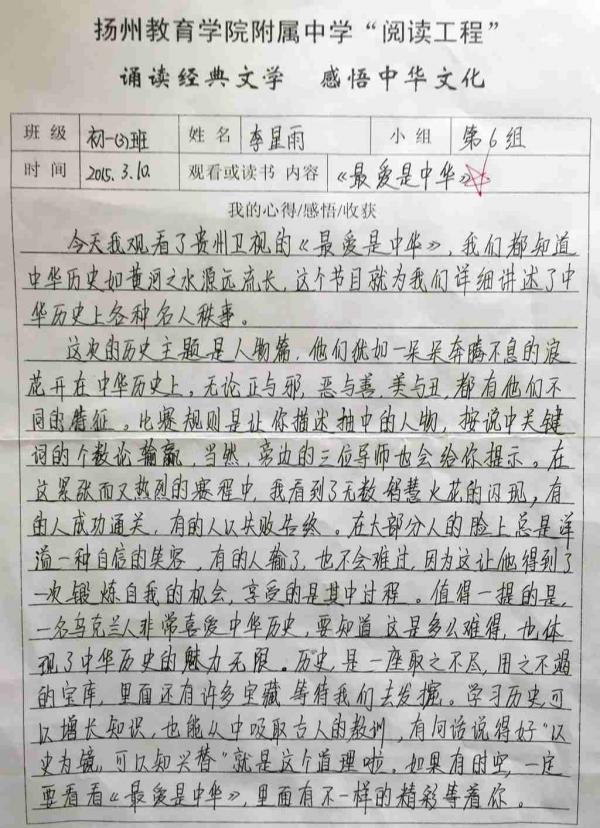 扬州教育学院附属中学“阅读工程”
诵读经典文学 感悟中华文化
班级 初一(3)班 姓名 李星雨 小组 第6组
时间 2015.3.10. 观看或读书 内容 《最爱是中华》
我的心得/感悟/收获
今天我观看了贵州卫视的《最爱是中华》，我们都知道
中华历史如黄河之水源远流长，这个节目就为我们详细讲述了中
华历史上各种名人秩事。
这次的历史主题是人物篇，他们犹如一朵朵奔腾不息的浪
花开在中华历史上，无论正与邪，恶与善，美与丑，都有他们不
同的特征。比赛规则是让你描述抽中的人物，按说中关键
词的个数论输赢，当然，旁边的三位导师也会给你提示。在
这紧张而又热烈的赛程中，我看到了无数智慧火花的闪现，有
的人成功通关，有的人以失败告终。在大部分人的脸上总是洋
溢一种自信的笑容，有的人输了，也不会难过，因为这让他得到了
一次锻炼自我的机会，享受的是其中过程。值得一提的是，
一名乌克兰人非常喜爱中华历史，要知道这是多么难得，也体
现了中华历史的魅力无限。历史，是一座取之不尽，用之不竭
的宝库，里面还有许多宝藏等待我们去发掘。学习历史可
以增长知识，也能从中吸取古人的教训，有句话说得好“以
史为镜，可以知兴替”就是这个道理啦。如果有时空，一定
要看看《最爱是中华》，里面有不一样的精彩等着你。